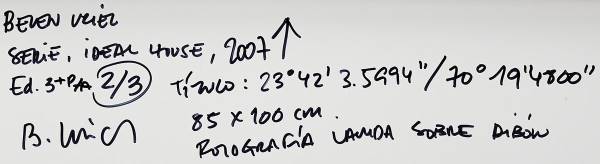 BELEN UCIEL
SERIE, IDEAL HOUSE, 2007 ↑
Ed. 3+P/A 2/3 TÍTULO: 23°42' 3.5994"/70° 19'4800"
B. Uciel
85 x 100 cm
FOTOGRAFÍA LAMDA SOBRE DIBÓN